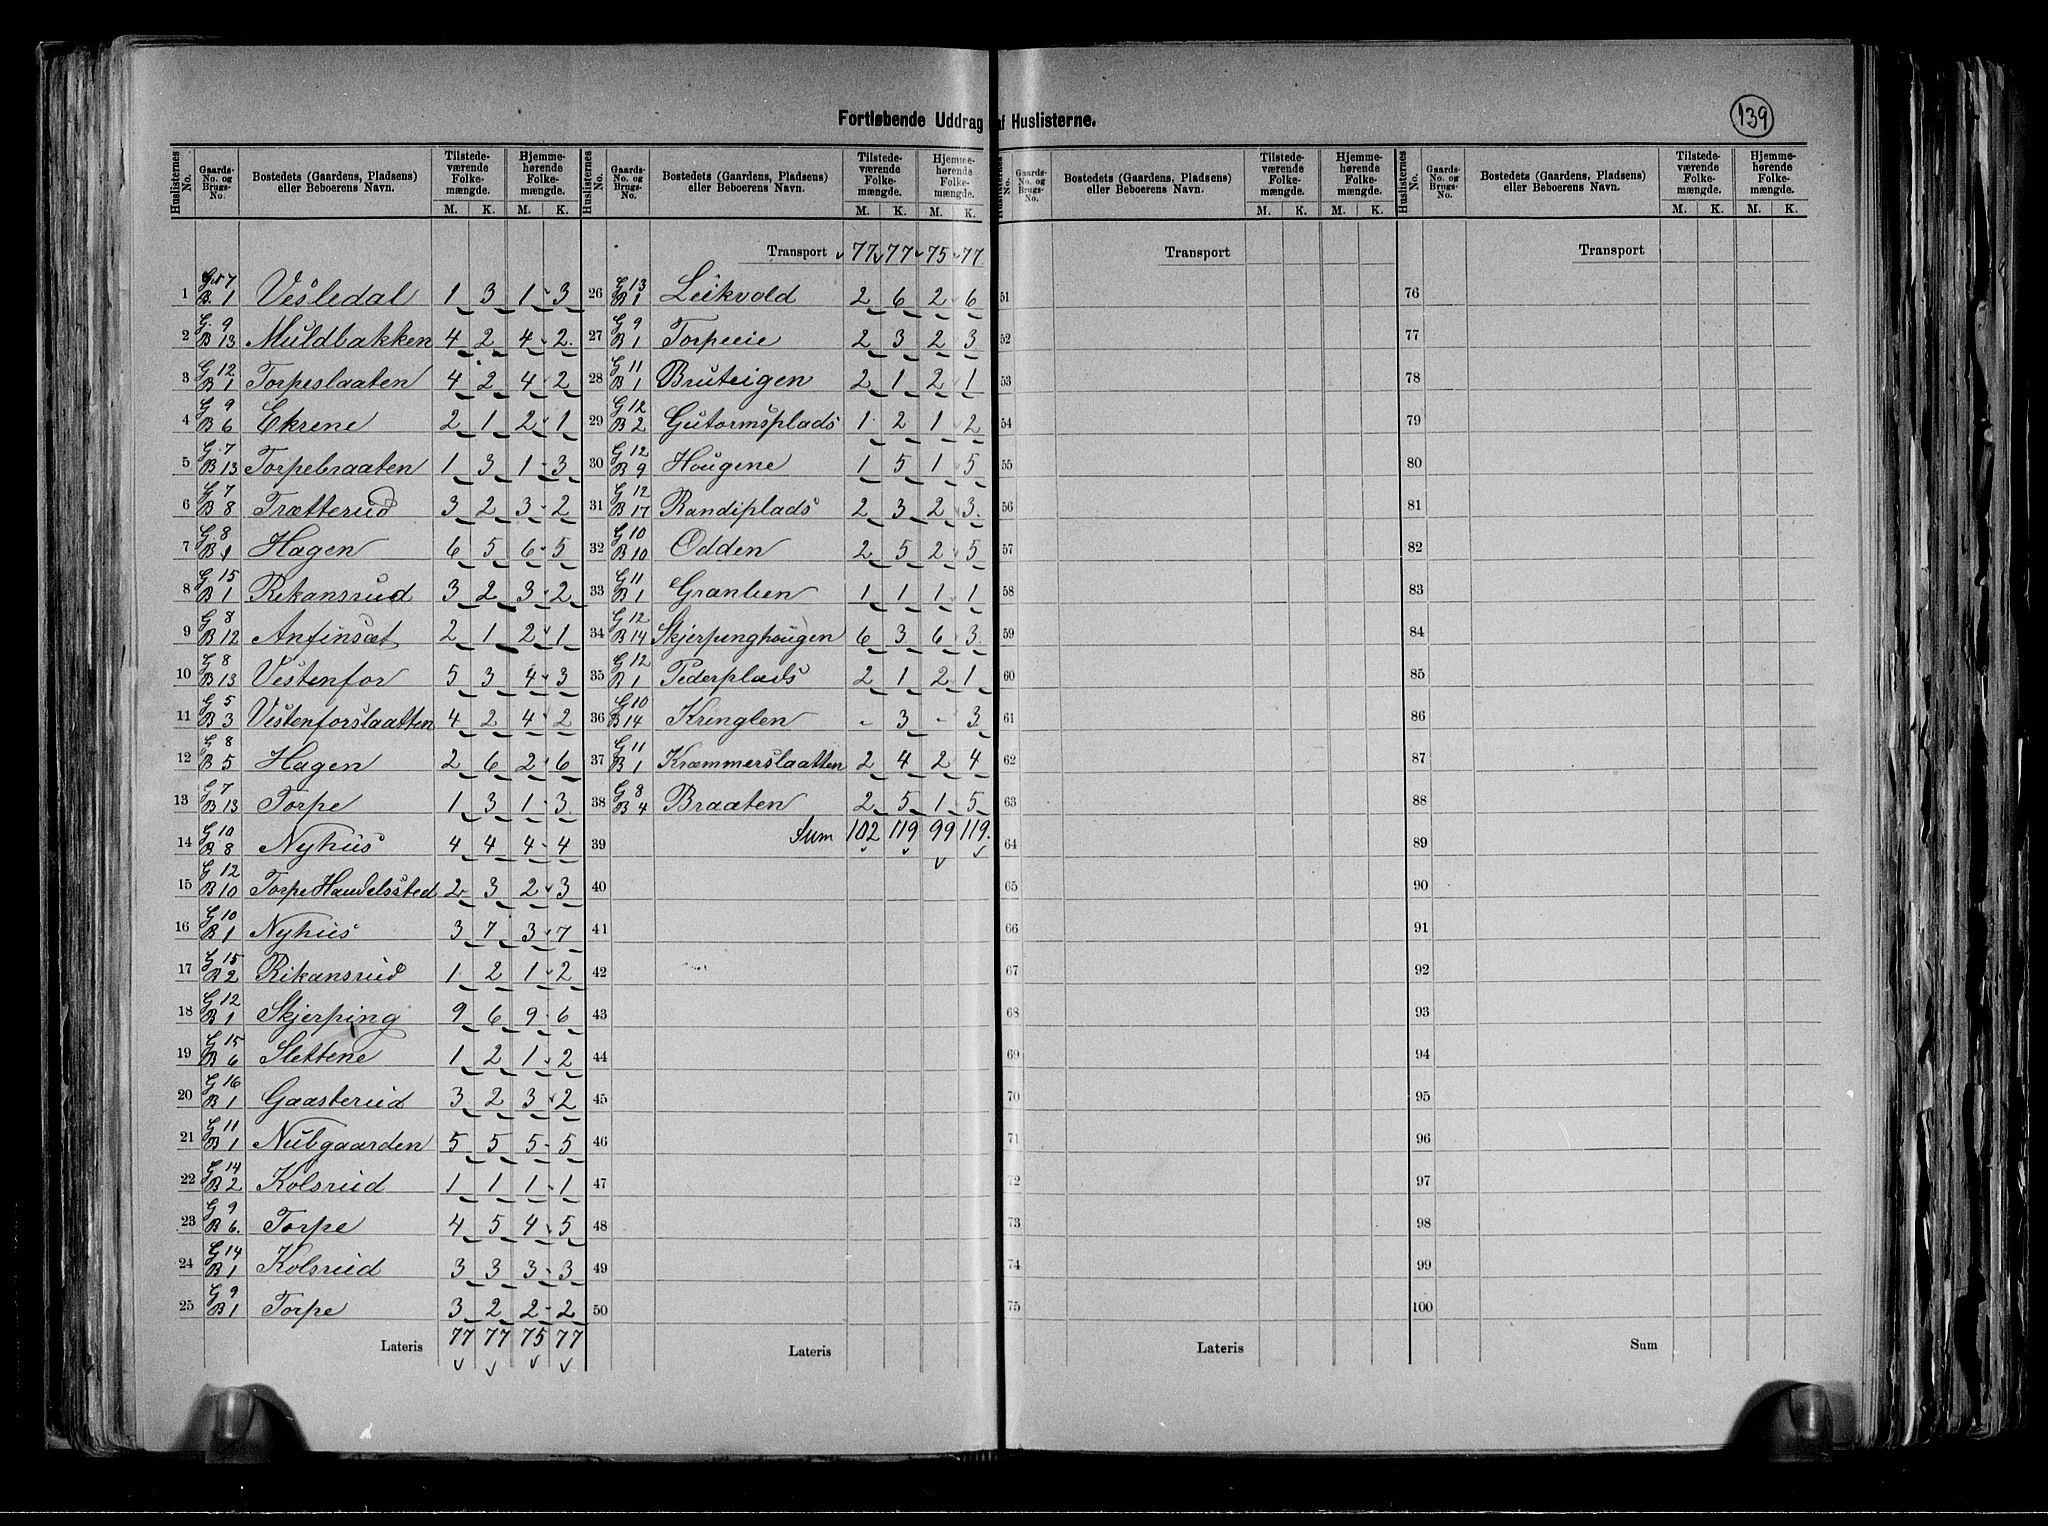 139
Fortløbende Uddrag af Huslisterne.
Huslisternes No. | Gaards-No. og Brugs-No. | Bostedets (Gaardens, Pladsens) eller Beboerens Navn. | Tilstedeværende Folkemængde. M. K. | Hjemmehørende Folkemængde. M. K.
1 G. 7 B. 1 Vesledal 1 3 1 3
2 G. 9 B 13 Muldbakken 4 2 4 2
3 G 12 B 1 Torpeslaaten 4 2 4 2
4 G 9 B 6 Ekrene 2 1 2 1
5 G. 7 B 13 Torpebraaten 1 3 1 3
6 G 7 B 8 Trætterud 3 2 3 2
7 G. 8 B 1 Hagen 6 5 6 5
8 G. 15 B 1 Rekansrud 3 2 3 2
9 G 8 B 12 Anfinsæt 2 1 2 1
10 G 8 B 13 Vestenfor 5 3 4 3
11 G 5 B 3 Vestenforslaatten 4 2 4 2
12 G 8 B 5 Hagen 2 6 2 6
13 G 7 B 13 Torpe 1 3 1 3
14 G 10 B 8 Nyhus 4 4 4 4
15 G 12 B 10 Torpe Handelssted 2 3 2 3
16 G 10 B 1 Nyhus 3 7 3 7
17 G 15 B 2 Rikansrud 1 2 1 2
18 G 12 B 1 Skjerping 9 6 9 6
19 G 15 B 6 Slettene 1 2 1 2
20 G 16 B 1 Gaasterud 3 2 3 2
21 G 11 B 1 Nubgaarden 5 5 5 5
22 G 14 B 2 Kolsrud 1 1 1 1
23 G 9 B 6. Torpe 4 5 4 5
24 G 14 B 1 Kolsrud 3 3 3 3
25 G 9 B 1 Torpe 3 2 2 2
Lateris 77 77 75 77
Huslisternes No. | Gaards-No. og Brugs-No. | Bostedets (Gaardens, Pladsens) eller Beboerens Navn. | Tilstedeværende Folkemængde. M. K. | Hjemmehørende Folkemængde. M. K.
Transport 77 77 75 77
26 G 13 B 1 Leikvold 2 6 2 6
27 G 9 B 1 Torpeeie 2 3 2 3
28 G 11 B 1 Bruteigen 2 1 2 1
29 G 12 B 2 Gutormsplads 1 2 1 2
30 G 12 B 9 Hougene 1 5 1 5
31 G 12 B 17 Randiplads 2 3 2 3
32 G 10 B 10 Odden 2 5 2 5
33 G 11 B 1 Granlien 1 1 1 1
34 G 12 B 14 Skjerpinghougen 6 3 6 3
35 G 12 B 1 Pederplads 2 1 2 1
36 G 10 B 14 Kringlen - 3 - 3
37 G 11 B 1 Kræmmerslaatten 2 4 2 4
38 G 8 B 4 Braaten 2 5 1 5
39 Sum 102 119 99 119.
40
41
42
43
44
45
46
47
48
49
50
Lateris
Huslisternes No. | Gaards-No. og Brugs-No. | Bostedets (Gaardens, Pladsens) eller Beboerens Navn. | Tilstedeværende Folkemængde. M. K. | Hjemmehørende Folkemængde. M. K.
Transport
51
52
53
54
55
56
57
58
59
60
61
62
63
64
65
66
67
68
69
70
71
72
73
74
75
Lateris
Huslisternes No. | Gaards-No. og Brugs-No. | Bostedets (Gaardens, Pladsens) eller Beboerens Navn. | Tilstedeværende Folkemængde. M. K. | Hjemmehørende Folkemængde. M. K.
Transport
76
77
78
79
80
81
82
83
84
85
86
87
88
89
90
91
92
93
94
95
96
97
98
99
100
Sum